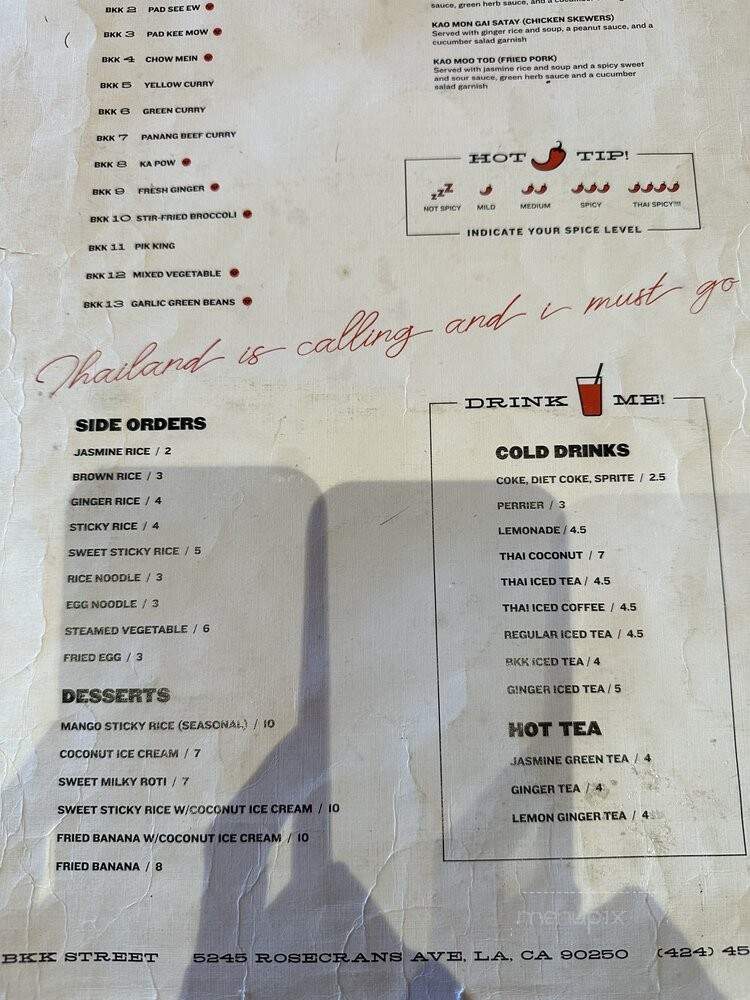 BKK 2 PAD SEE EW
BKK 3 PAD KEE MOW
BKK 4 CHOW MEIN
BKK 5 YELLOW CURRY
BKK 6 GREEN CURRY
BKK 7 PANANG BEEF CURRY
BKK 8 KA POW
BKK 9 FRESH GINGER
BKK 10 STIR-FRIED BROCCOLI
BKK 11 PIK KING
BKK 12 MIXED VEGETABLE
BKK 13 GARLIC GREEN BEANS
sauce, green herb sauce, and a cucumber
KAO MON GAI SATAY (CHICKEN SKEWERS)
Served with ginger rice and soup, a peanut sauce, and a
cucumber salad garnish
KAO MOO TOD (FRIED PORK)
Served with jasmine rice and soup and a spicy sweet
and sour sauce, green herb sauce and a cucumber
salad garnish
HOT TIP!
zzZ
NOT SPICY MILD MEDIUM SPICY THAI SPICY!!!!
INDICATE YOUR SPICE LEVEL
Thailand is calling and i must go
SIDE ORDERS
JASMINE RICE / 2
BROWN RICE / 3
GINGER RICE / 4
STICKY RICE / 4
SWEET STICKY RICE / 5
RICE NOODLE / 3
EGG NOODLE / 3
STEAMED VEGETABLE / 6
FRIED EGG / 3
DESSERTS
MANGO STICKY RICE (SEASONAL) / 10
COCONUT ICE CREAM / 7
SWEET MILKY ROTI / 7
SWEET STICKY RICE W/COCONUT ICE CREAM / 10
FRIED BANANA W/COCONUT ICE CREAM / 10
FRIED BANANA / 8
DRINK ME!
COLD DRINKS
COKE, DIET COKE, SPRITE / 2.5
PERRIER / 3
LEMONADE / 4.5
THAI COCONUT / 7
THAI ICED TEA / 4.5
THAI ICED COFFEE / 4.5
REGULAR ICED TEA / 4.5
BKK ICED TEA / 4
GINGER ICED TEA / 5
HOT TEA
JASMINE GREEN TEA / 4
GINGER TEA / 4
LEMON GINGER TEA / 4
menupix
BKK STREET 5245 ROSECRANS AVE, LA, CA 90250 (424) 45